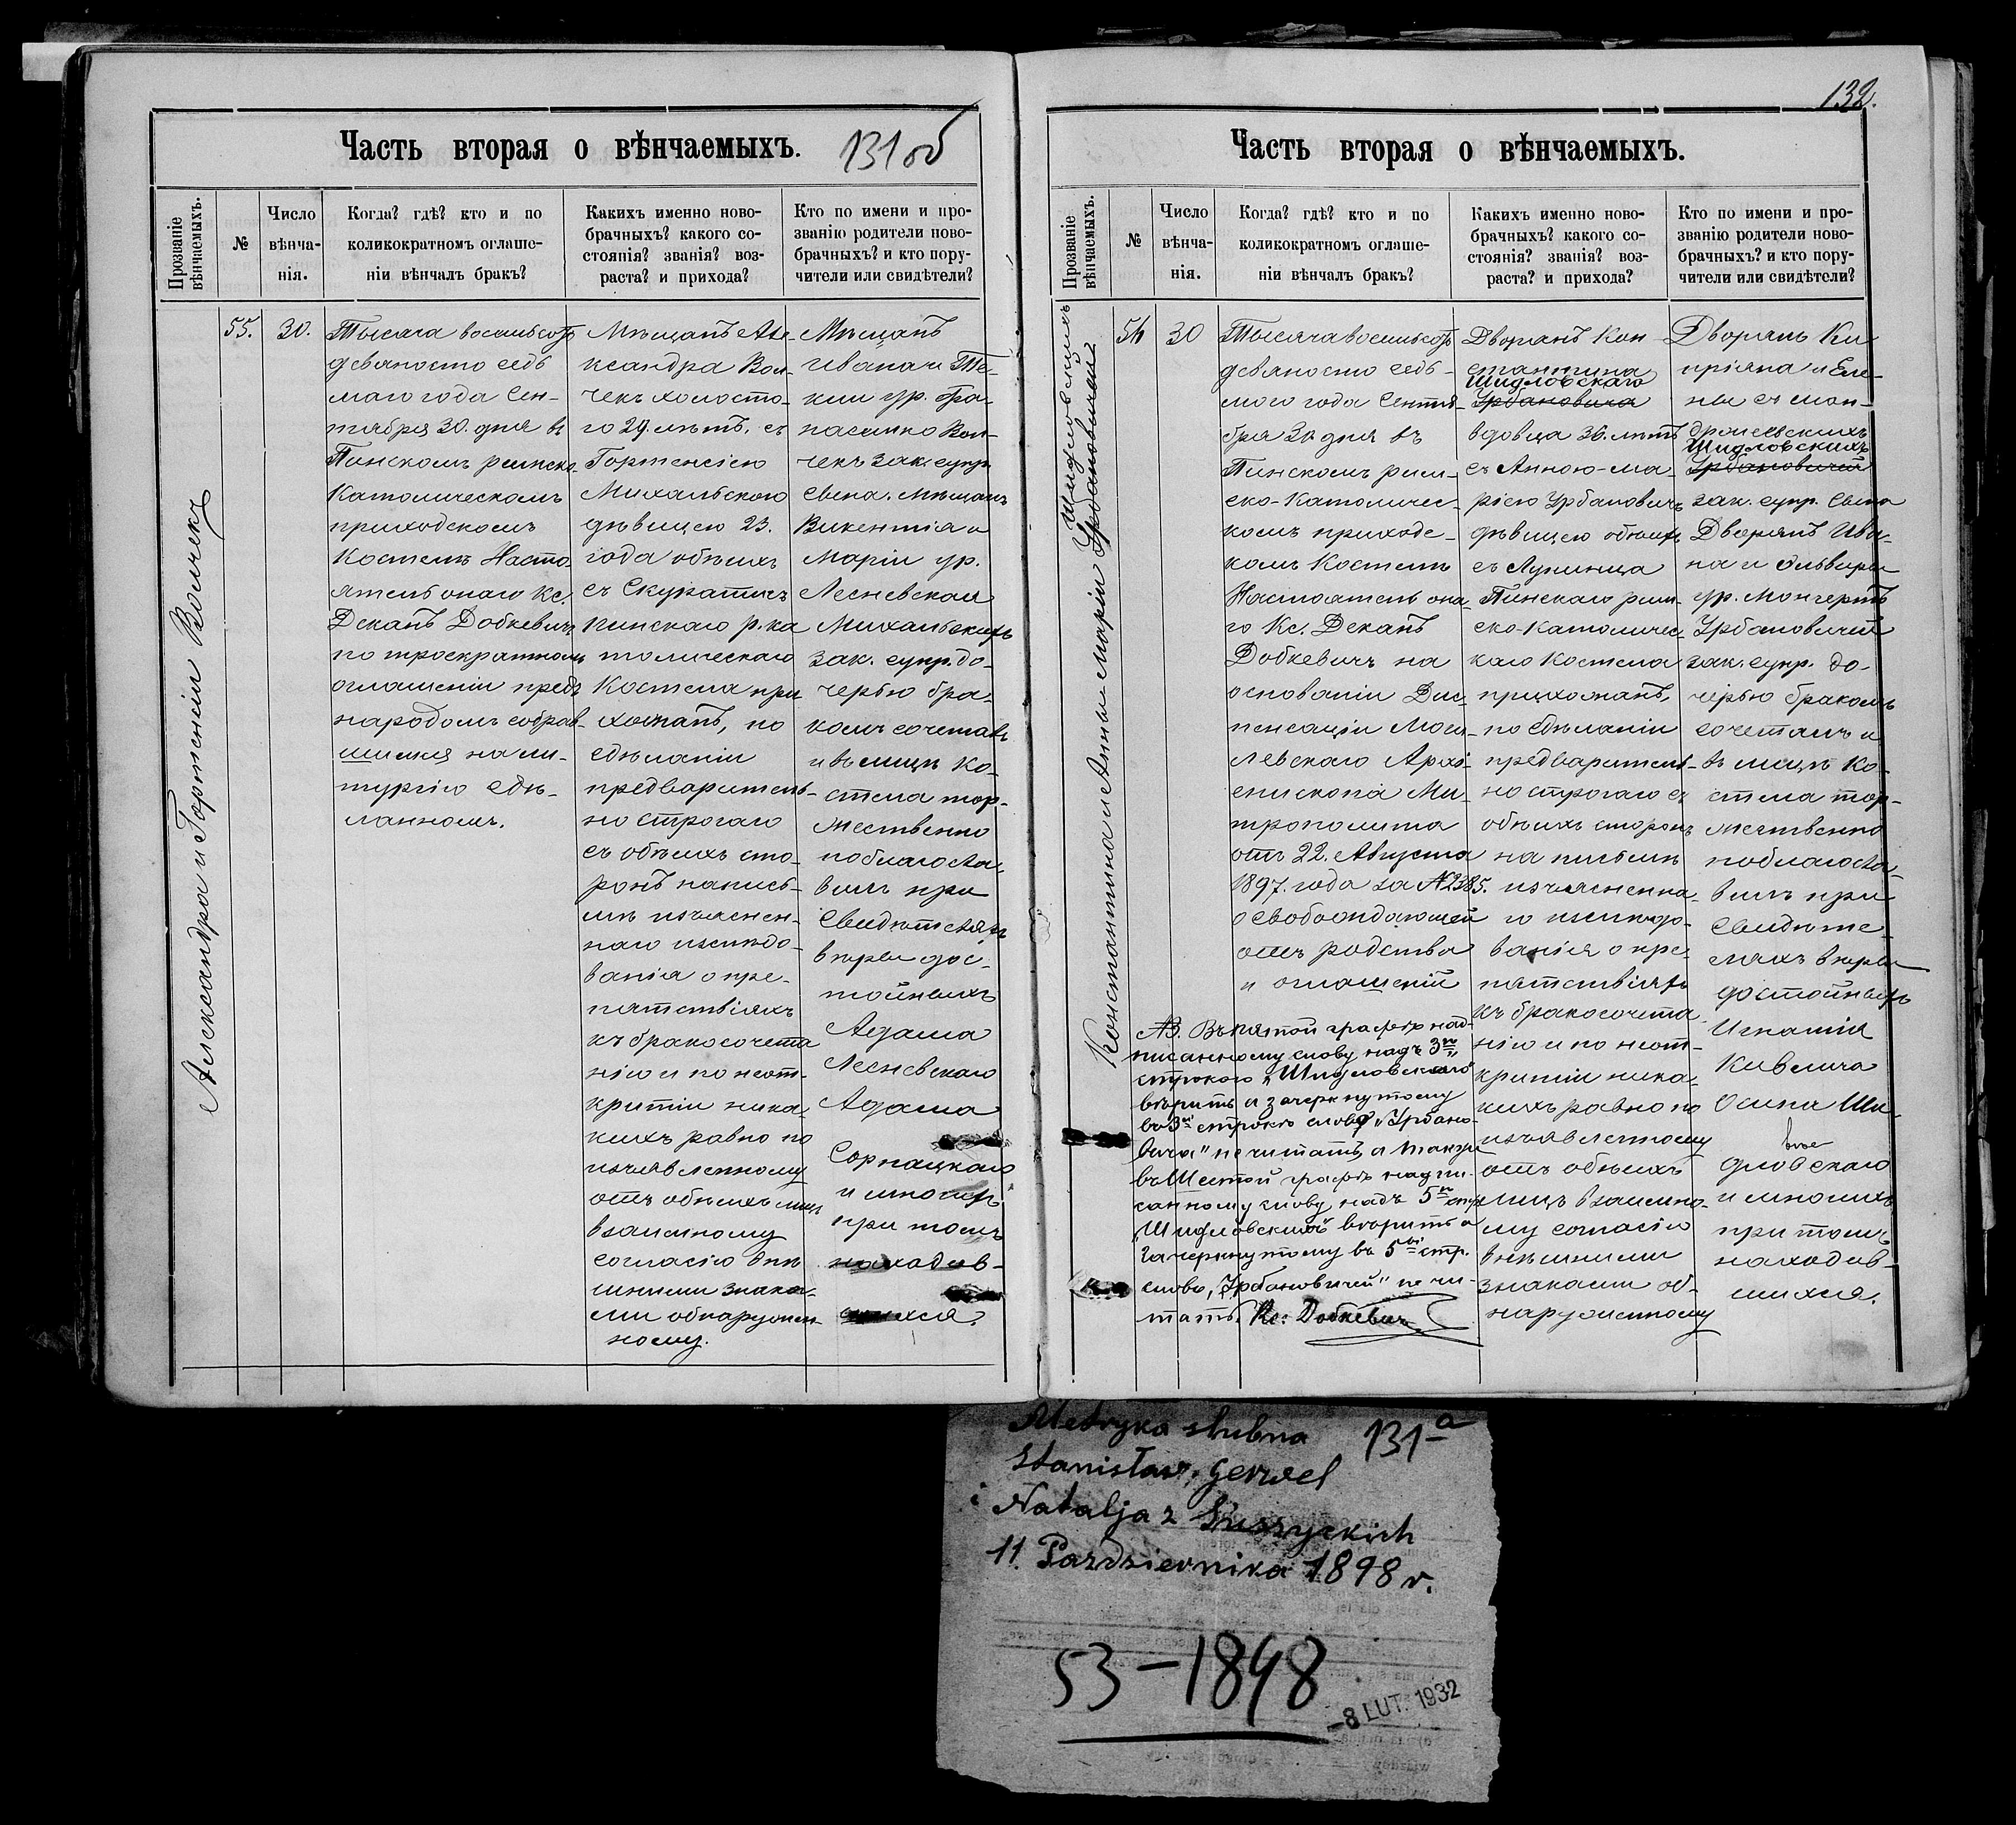 Часть вторая о вѣнчаемыхъ. 131 об
Прозваніе вѣнчаемыхъ.
№
Число вѣнча-
нія.
Когда? гдѣ? кто и по
коликократномъ оглаше-
ніи вѣнчалъ бракъ?
Какихъ именно ново-
брачныхъ? какого со-
стоянія? званія? воз-
раста? и прихода?
Кто по имени и про-
званію родители ново-
брачныхъ? и кто пору-
чители или свидѣтели?
Александра и Гортензіи Волчекъ
55.
30.
Тысяча восемьсотъ
девяносто седь
маго года Сен-
тября 30. дня въ
Пинскомъ римско
Католическомъ
приходскомъ
Костелѣ Насто-
ятель онаго Кс.
Деканъ Добкевичъ
по троекратномъ
оглашеніи предъ
народомъ собрав-
шимся на ли-
тургію сдѣ-
ланномъ.
Мѣщанъ Але-
ксандра Вол-
чекъ холосто-
го 29. лѣтъ, съ
Гортенсіею
Михальскою
дѣвицею 23.
года обѣихъ
съ
Пинскаго р. ка
толическаго
Костела при
хожанъ, по
сдѣланіи
предваритель-
но строгаго
съ обѣихъ сто-
ронъ напись-
мѣ изъяснен-
наго изслѣдо-
ванія о пре-
пятствіяхъ
къ бракосочета
нію и по неот-
крытіи ника-
кихъ равно по
изъявленному
отъ обѣихъ лицъ
взаимному
согласію внѣ
шними знака-
ми обнаружен-
ному.
Мѣщанъ
Ивана и Те-
кли ур.
Вол-
чекъ зак. супр.
сына. Мѣщанъ
Викентія и
Маріи ур.
Лесневская
Михальскихъ
зак. супр. до-
черью бра-
комъ сочеталъ
и въ лицѣ Ко-
стела тор-
жественно
поблагосла-
вилъ при
Свидѣтеляхъ
вѣры дос-
тойныхъ
Адама
Лесневскаго
Адама
Сорпацкаго
и многихъ
при томъ
находив-
шихся.
132.
Часть вторая о вѣнчаемыхъ.
Прозваніе вѣнчаемыхъ.
№
Число вѣнча-
нія.
Когда? гдѣ? кто и по
коликократномъ оглаше-
ніи вѣнчалъ бракъ?
Какихъ именно ново-
брачныхъ? какого со-
стоянія? званія? воз-
раста? и прихода?
Кто по имени и про-
званію родители ново-
брачныхъ? и кто пору-
чители или свидѣтели?
Шидловскихъ
Константина и Анны-Маріи Урбановичей
56
30
Тысяча восемьсотъ
девяносто седь-
мого года Сентя-
бря 30 дня въ
Пинскомъ рим-
ско-Католичес-
комъ приходс-
комъ Костелѣ
Настоятель она-
го Кс. Деканъ
Добкевичъ на
основаніи Дис-
пенсаціи Моги-
левскаго Архі-
епископа Ми-
трополита
отъ 22. Августа
1897. года за № 2385.
освобождающей
отъ родства
и оглашеній
Дворянъ Кон
стантина
Шидловскаго
Урбановича
вдовца 36. лѣтъ
съ Анною-Ма-
ріею Урбановичъ
дѣвицею обоихъ
съ Лунинца
Пинскаго рим-
ско-Католичес-
каго Костела
прихожанъ,
по сдѣланіи
предваритель-
но строгаго съ
обѣихъ сторонъ
на письмѣ
изъясненна-
го изслѣдо-
ванія о пре-
пятствіяхъ
къ бракосочета
нію и по неот-
крытіи ника-
кихъ равно по
изъявленному
отъ обѣихъ
лицъ взаимно-
му согласію
внѣшними
знаками об-
наруженному
Дворянъ Ки
пріяна и Еле-
ны
Шидловскихъ
Урбановичей
зак. супр. сына
Дворянъ Ива-
на и Эльвиры
ур.
Урбановичей
зак. супр. до-
черью бракомъ
сочеталъ и
въ лицѣ Ко-
стела тор-
жественно
поблагосла-
вилъ при
Свидѣте-
ляхъ вѣры
достойныхъ
Игнатія
Кивлича
Осипа Ши-
дловскаго
и многихъ
при томъ
находив-
шихся.
NB. Въ пятой графѣ над-
писанному слову надъ 3й
строкою „Шидловскаго"
вѣрить а зачеркнутому
въ 3й строкѣ слову „Урбано-
вича" не читать, а также
въ Шестой графѣ надпи-
санному слову надъ 5й стр
„Шидловскихъ" вѣрить а
зачеркнутому въ 5й стр.
слово „Урбановичей" не чи-
тать. Кс: Добкевичъ
Metryka ślubna 131 a
Stanisław Gerwel
i Natalja z Suszyckich
11 Października 1898 r.
53 – 1898
– 8 LUT. 1932